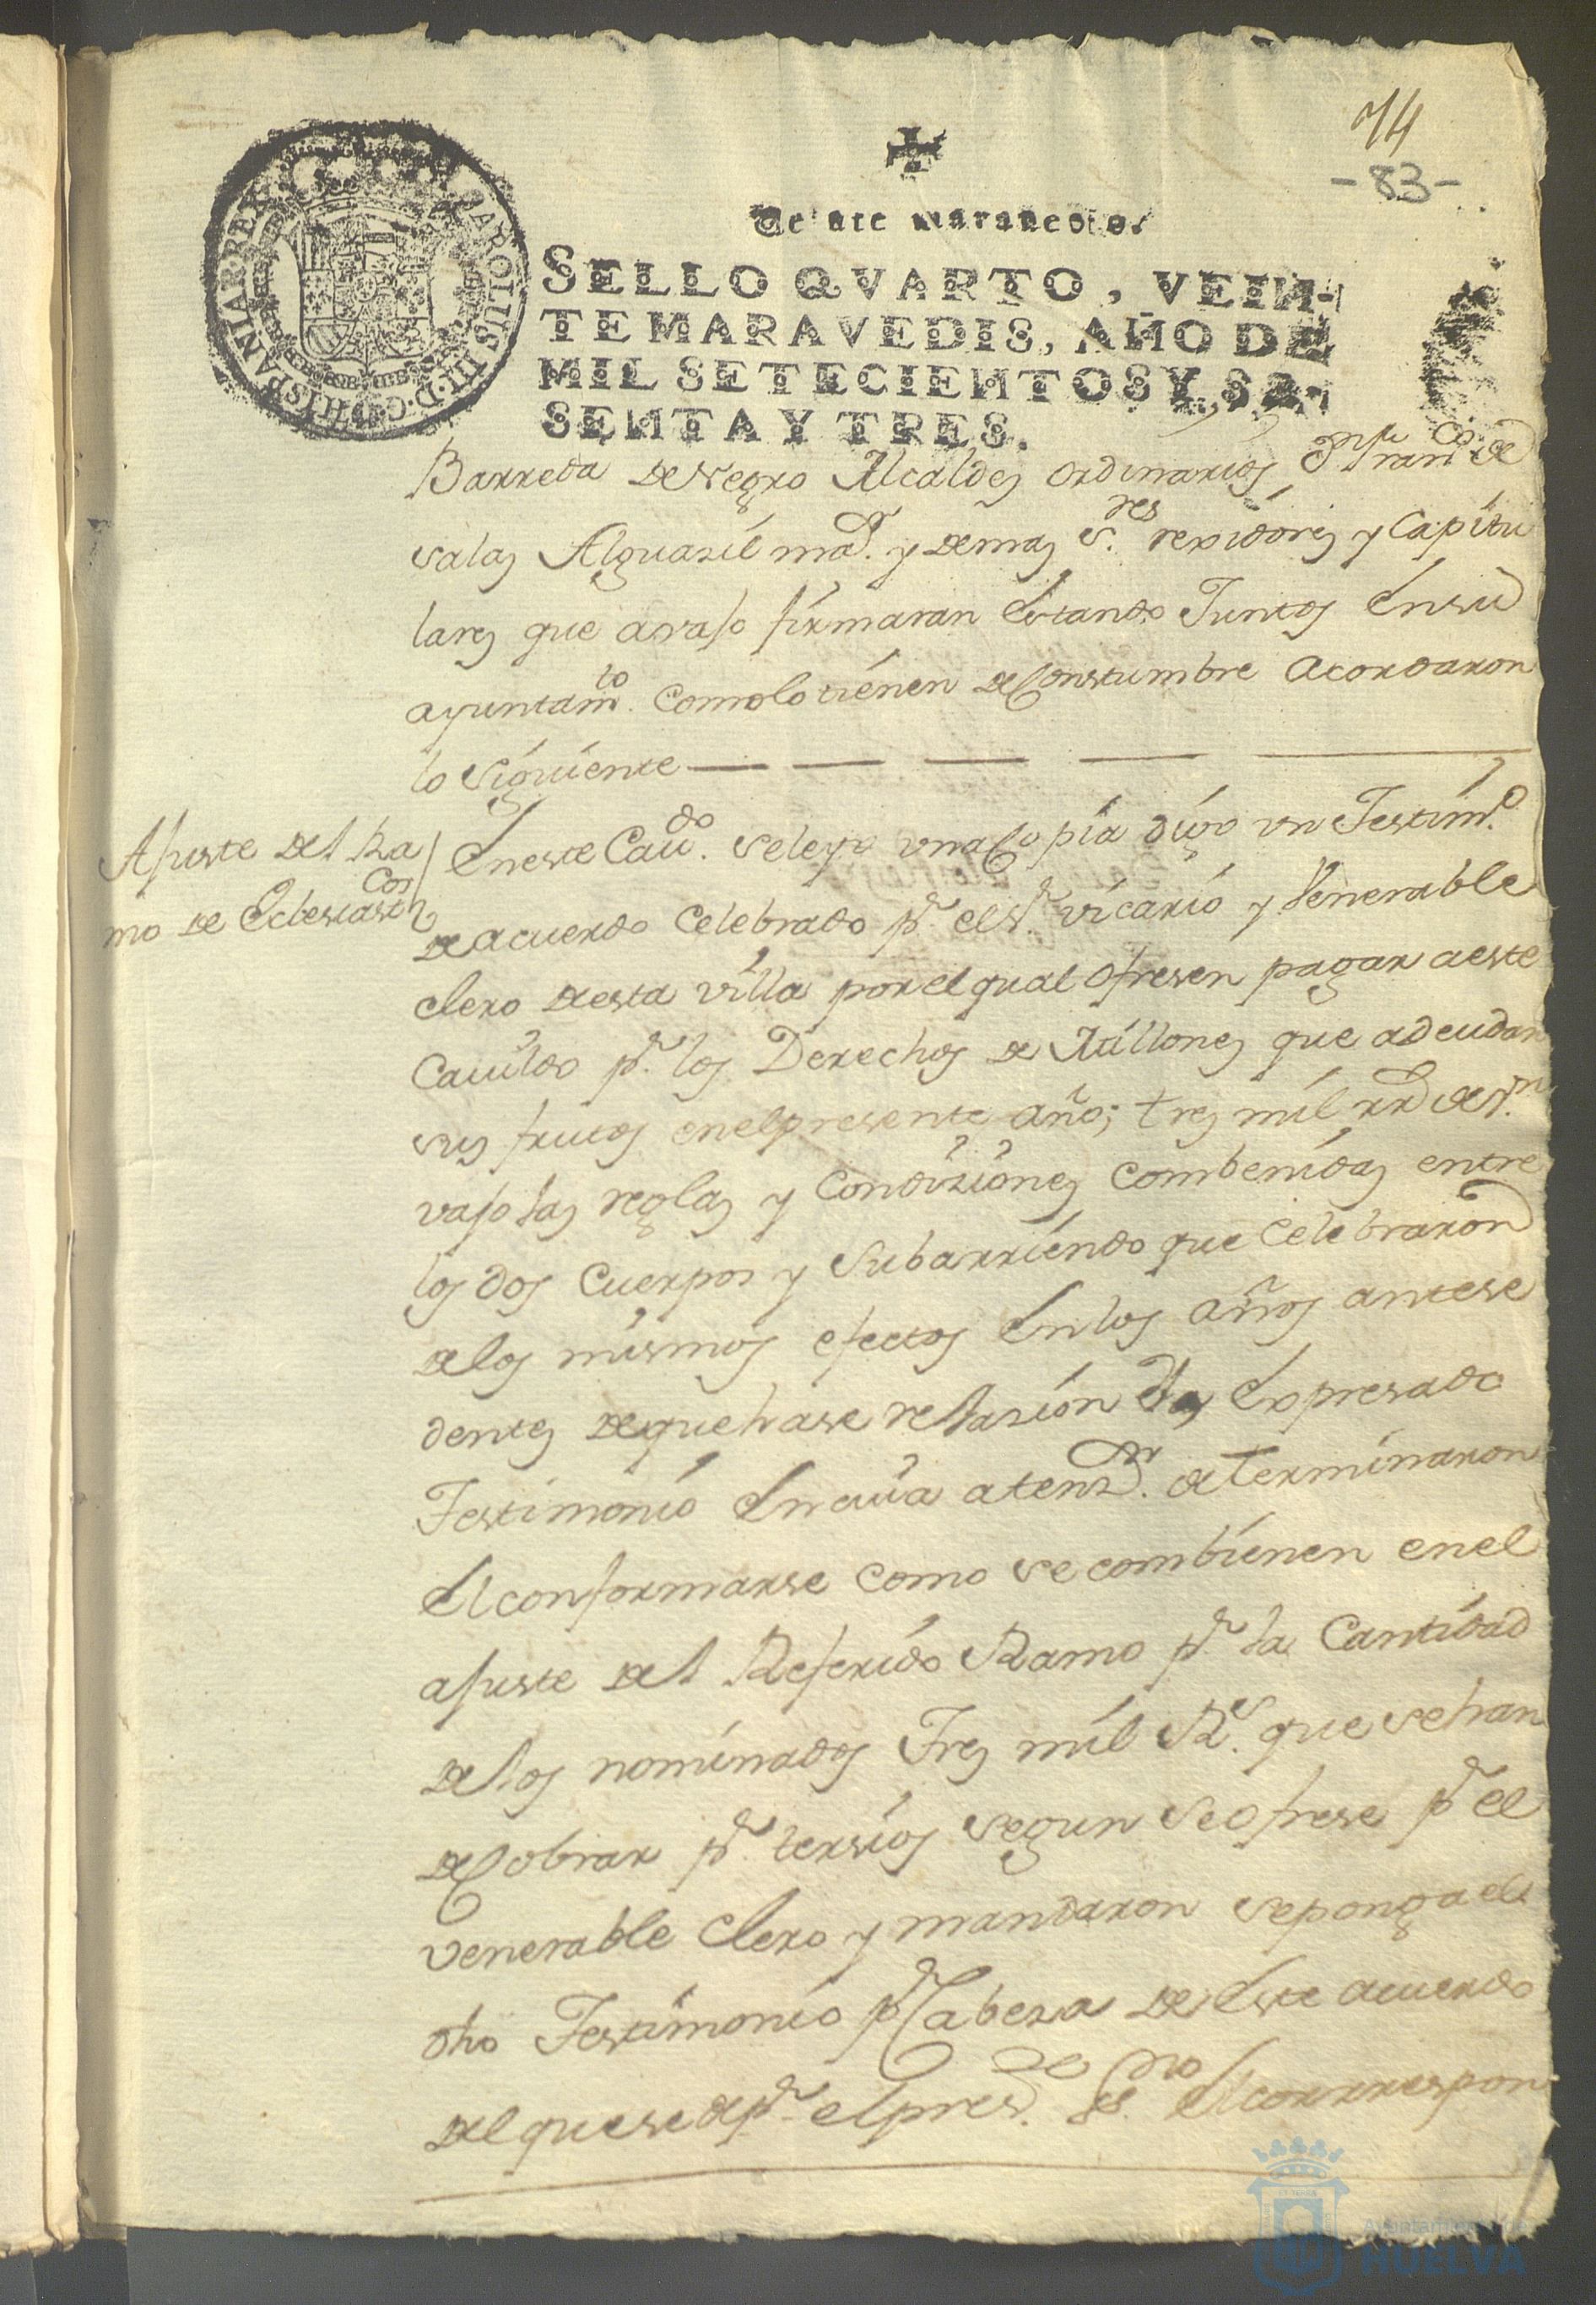 74
-83-
Veinte maravedis.
SELLO QVARTO, VEIN-
TE MARAVEDIS, AÑO DE
MIL SETECIENTOS Y SE-
SENTA Y TRES.
CAROLUS III D.G. HISPANIAR. REX
Barreda de Negro Alcaldes ordinarios Dn. Franco. de
salas Alguasil mar. y demas Sres. rexidores y Capitu
lares que avajo firmaran Estando Juntos En su
ayuntamto. como lo tienen de Constumbre acordaron
lo siguiente
Ajuste del Ra
mo de Eclesiasticos
En este Caudo. se leyo vna Copia digo vn Testimo.
de acuerdo Celebrado pr. el Sr. vicario y Venerable
clero de esta villa por el qual ofresen pagar a este
Cauildo pr. los Derechos de Millones que adeudan
sus frutos en el presente año; tres mil rrs. de vn.
vajo las reglas y Condiziones combenidas entre
los dos Cuerpos y subarriendo que Celebraron
de los mismos efectos En los años antese
dentes de que hase relasion Expresado
Testimonio En cuia atenzn. determinaron
El conformarse como se combienen en el
ajuste del Referido Ramo pr. la Cantidad
de los nominados Tres mil Rs. que se han
de Cobrar pr. tersios segun se ofrese pr. el
venerable Clero y mandaron se ponga el
dho Testimonio pr. Cabeza de Este acuerdo
del que se de pr. el preste. Essno. El correspon
Ayuntamiento de
HUELVA